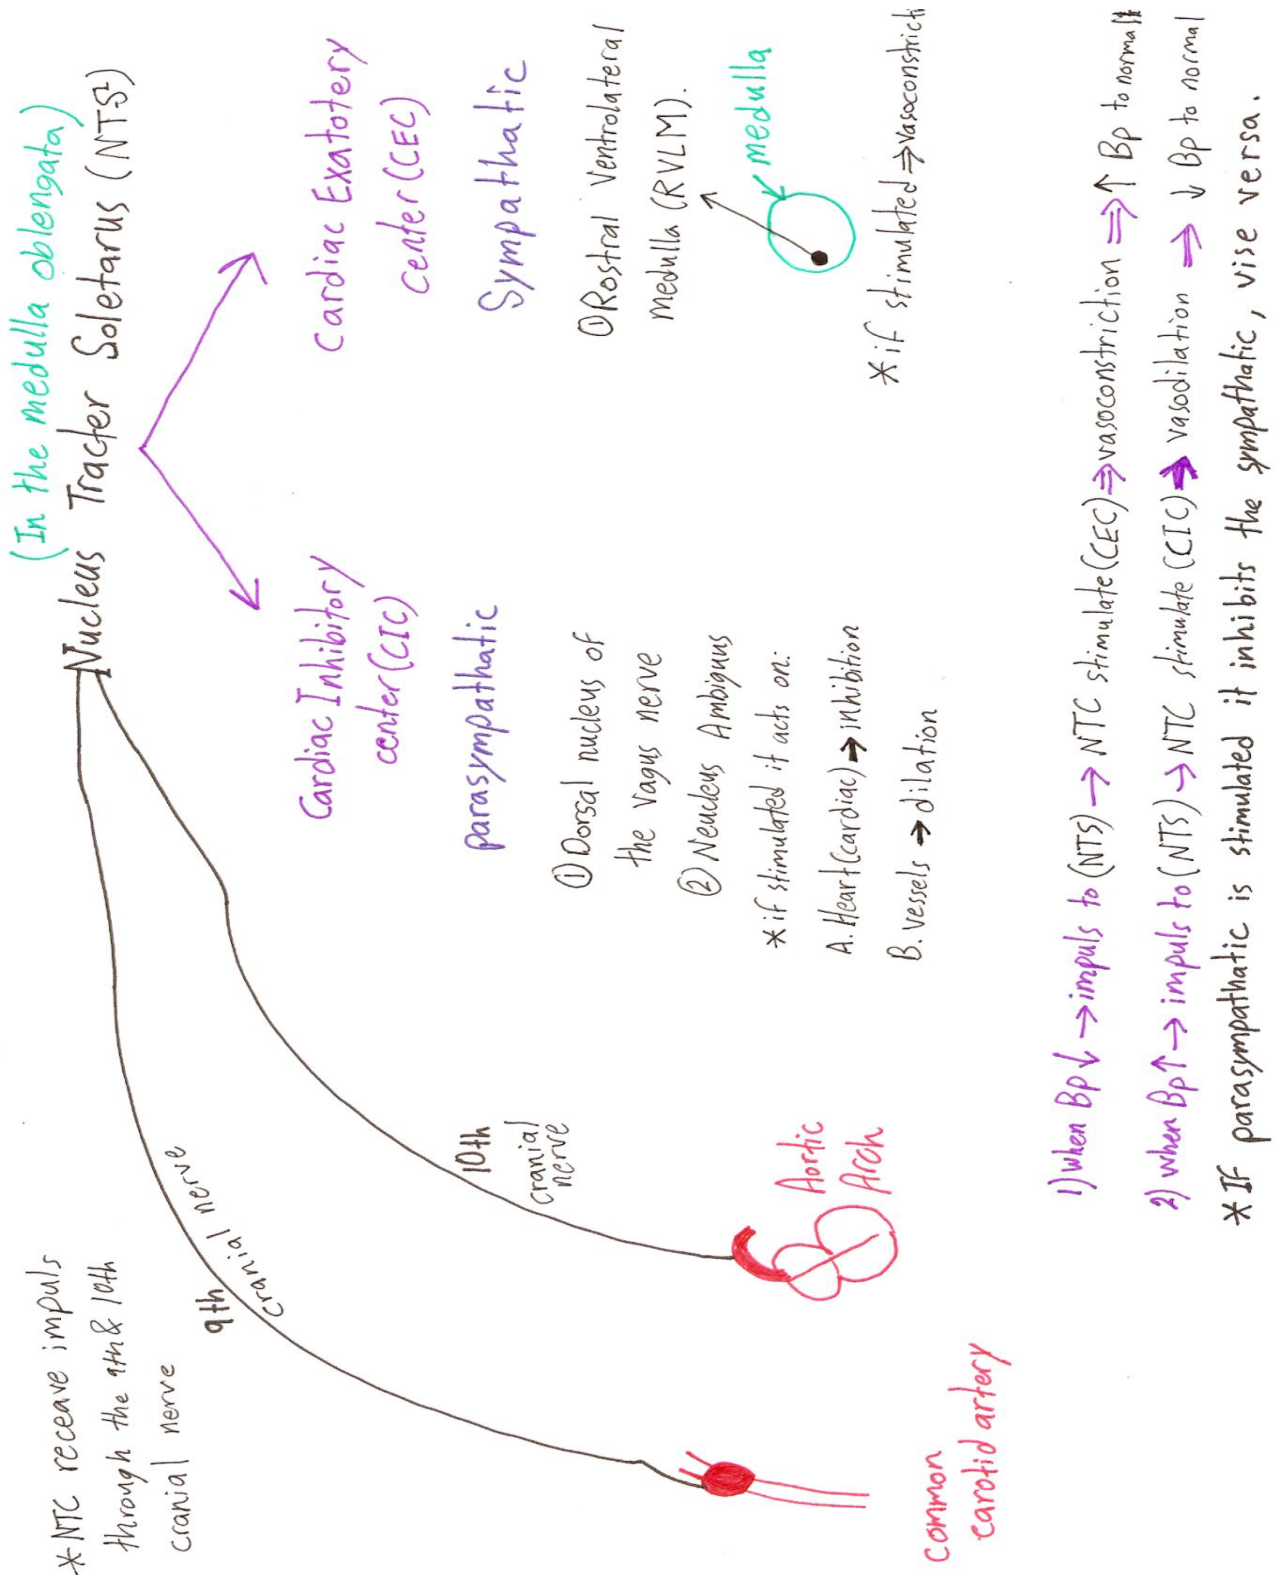 (In the medulla oblengata)
Nucleus Tracter Soletarus (NTS)
*NTC receave impuls
through the 9th & 10th
cranial nerve
9th
cranial nerve
10th
cranial
nerve
Common
carotid artery
Aortic
Arch
Cardiac Inhibitory
center (CIC)
parasympathatic
① Dorsal nucleus of
the vagus nerve
② Neucleus Ambiguus
*if stimulated it acts on:
A. Heart (cardiac) → inhibition
B. vessels → dilation
Cardiac Exatotery
Center (CEC)
Sympathatic
① Rostral Ventrolateral
medulla (RVLM).
medulla
*if stimulated ⇒ vasoconstricti
1) when Bp ↓ → impuls to (NTS) → NTC stimulate (CEC) ⇒ vasoconstriction ⇒ ↑ Bp to normal
2) when Bp ↑ → impuls to (NTS) → NTC stimulate (CIC) → vasodilation ⇒ ↓ Bp to normal
*IF parasympathatic is stimulated it inhibits the sympathatic, vise versa.